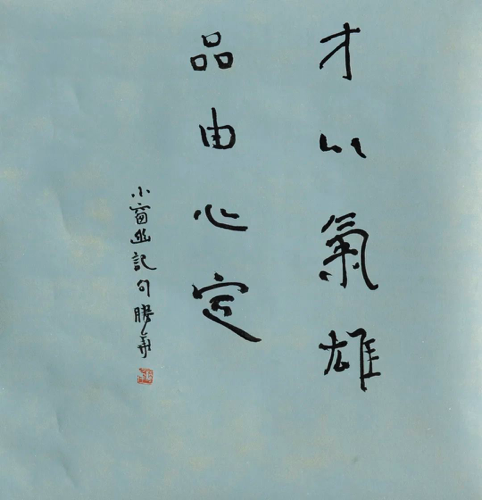 才以氣雄
品由心定
小窗幽記句勝